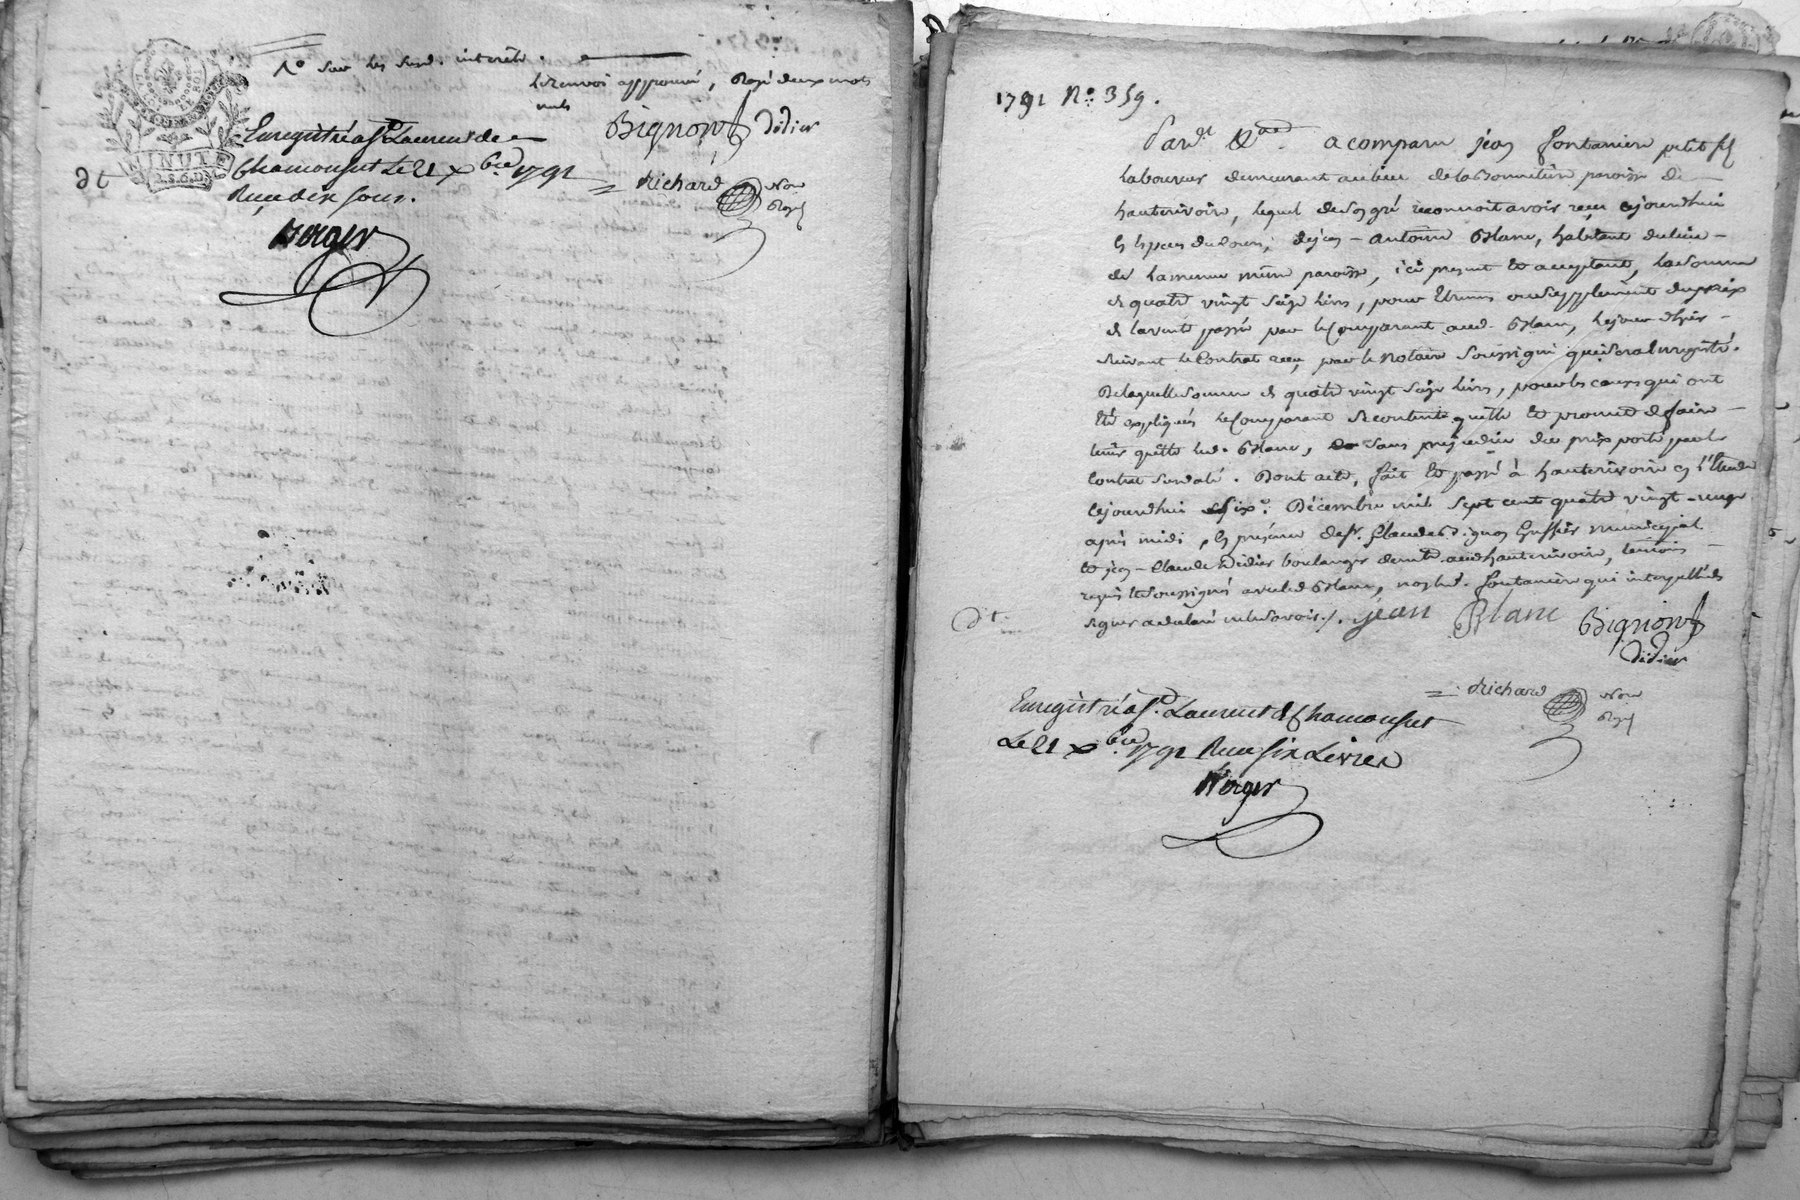 1° sur les susd. interets.
le renvoi approuvé, Rayé deux mots
nuls
Bignon Didier
Enregistré à St. Laurent de
Chamousset Le 21 Xbre 1791
Reçu dix sous.
Verger
Richard Nore
Royal
dt
MINUTE
2.S.6.D.
1791 N°: 359.
Pard.t &a. a comparu jean fontaniere petit fils
laboureur demeurant au lieu de la paroisse de
hauterivoire, lequel de son gré reconnoit avoir reçu cejourdhui
en especes de cours, de jean-antoine Blanc, habitant du lieu
de la même paroisse, ici present et acceptant, la somme
de quatre vingt seize livres, pour Etrennes ou supplément du prix
de la vente passée par le Comparant aud. Blanc, le jour d'hier
suivant le Contrat reçu par le Notaire soussigné qui sera Enregistré.
De laquelle somme de quatre vingt seize livres, pour les causes qui ont
été expliquées le Comparant se contente quitte et promet de faire
tenir quitte led. Blanc, sans prejudice du prix porté par le
Contrat susdaté. Dont acte, fait et passé à hauterivoire en l'Etude
cejourdhui six Décembre mil sept cent quatre vingt-onze
après midi, en présence de sr. Claude Bignon Greffier municipal
et jean-Claude Didier boulanger demt. aud. hauterivoire, temoins
requis et soussignés avec led Blanc, non led. fontaniere qui interpellé de
signer a déclaré ne le savoir./. jean Blanc Bignon
Didier
dt.
Richard Nore
Royal
Enregistré à St. Laurent de Chamousset
Le 21 Xbre 1791 Reçu six Livres
Verger